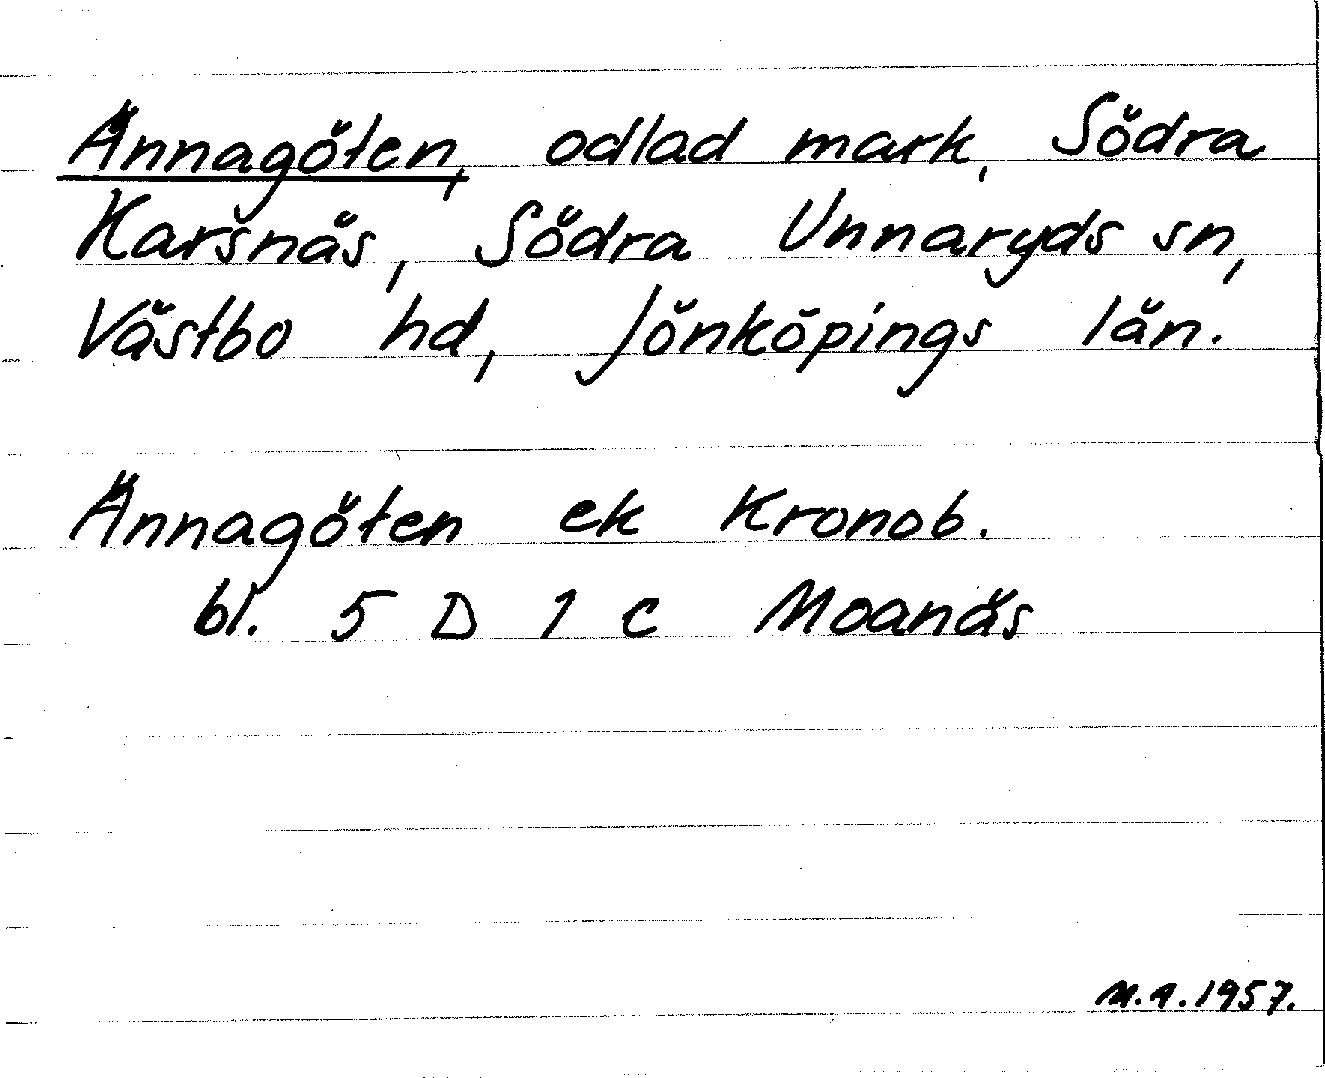 Ännagöten, odlad mark, Södra
Karsnäs, Södra Unnaryds sn,
Västbo hd, Jönköpings län.
Ännagöten ek Kronob.
bl. 5 D 1 c Moanäs
M.A. 1957.